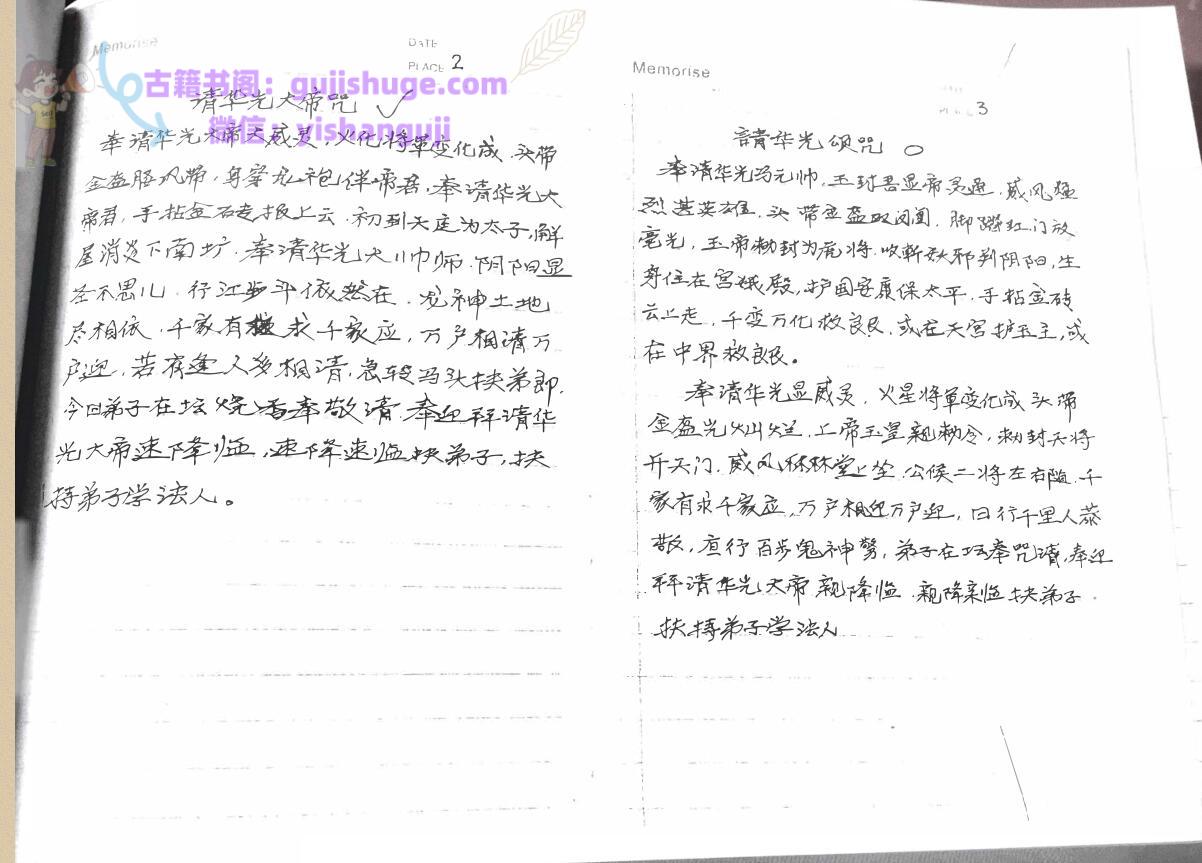 Memorise
DATE
PLACE 2
古籍书阁：gujishuge.com
微信：yishanguji
请华光大帝咒 ✓
奉请华光大帝大威灵，火化将軍变化成、头带
金盔脚风带，身穿九袍伴帝君，奉请华光大
帝君，手拈金砖报上云．初到天庭为太子，解
屋消灾下南方．奉请华光大帅师．阴阳显
圣不思儿．行江步斗依然在．龙神土地
尽相依．千家有求千家应，万户相请万
户迎，若有逢人多相请，急转马头扶弟郎．
今日弟子在坛烧香奉敬请．奉迎拜请华
光大帝速降临，速降速临扶弟子，扶
持弟子学法人。
Memorise
3
請华光颂咒 ○
奉请华光马元帅，玉封吾显帝灵通，威风猛
烈甚英雄．头带金盔双闪闪，脚踏红门放
毫光，玉帝勅封为元将．收斩妖邪判阴阳，生
身住在宫城殿，护国安康保太平．手拈金砖
云上走，千变万化救良民，或在天宫护玉主，或
在中界救良民。
奉请华光显威灵，火星将軍变化成 头带
金盔光灿烂．上帝玉皇親勅令，勅封天将
开天门．威风林林堂上坐．公候二将左右随．千
家有求千家应，万户相迎万户迎，日行千里人恭
敬，夜行百步鬼神驚，弟子在坛奉咒请，奉迎
拜请华光大帝親降临．親降来临扶弟子．
扶持弟子学法人